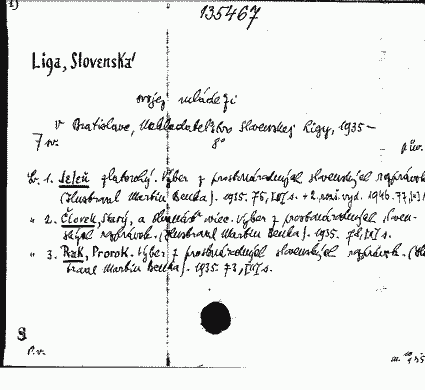 135467
Liga, Slovenská
svojej mládeži
v Bratislave, Nakladateľstvo Slovenskej Ligy, 1935 –
7 sv. 8°
1. Jeleň zlatorohý. Výber z prostonárodných slovenských rozprávok
(Illustroval Martin Benka). 1935. 75, [I] s. + 2. vyd. 1946. 77,
" 2. Človek, starý, a viec. Výber z prostonárodných sloven-
ských rozprávok. (Ilustroval Martin Benka). 1935. 78, [I] s.
" 3. Rak, Prorok. Výber z prostonárodných slovenských rozprávok.
stroval Martin Benka). 1935. 73, [I] s.
P.v.